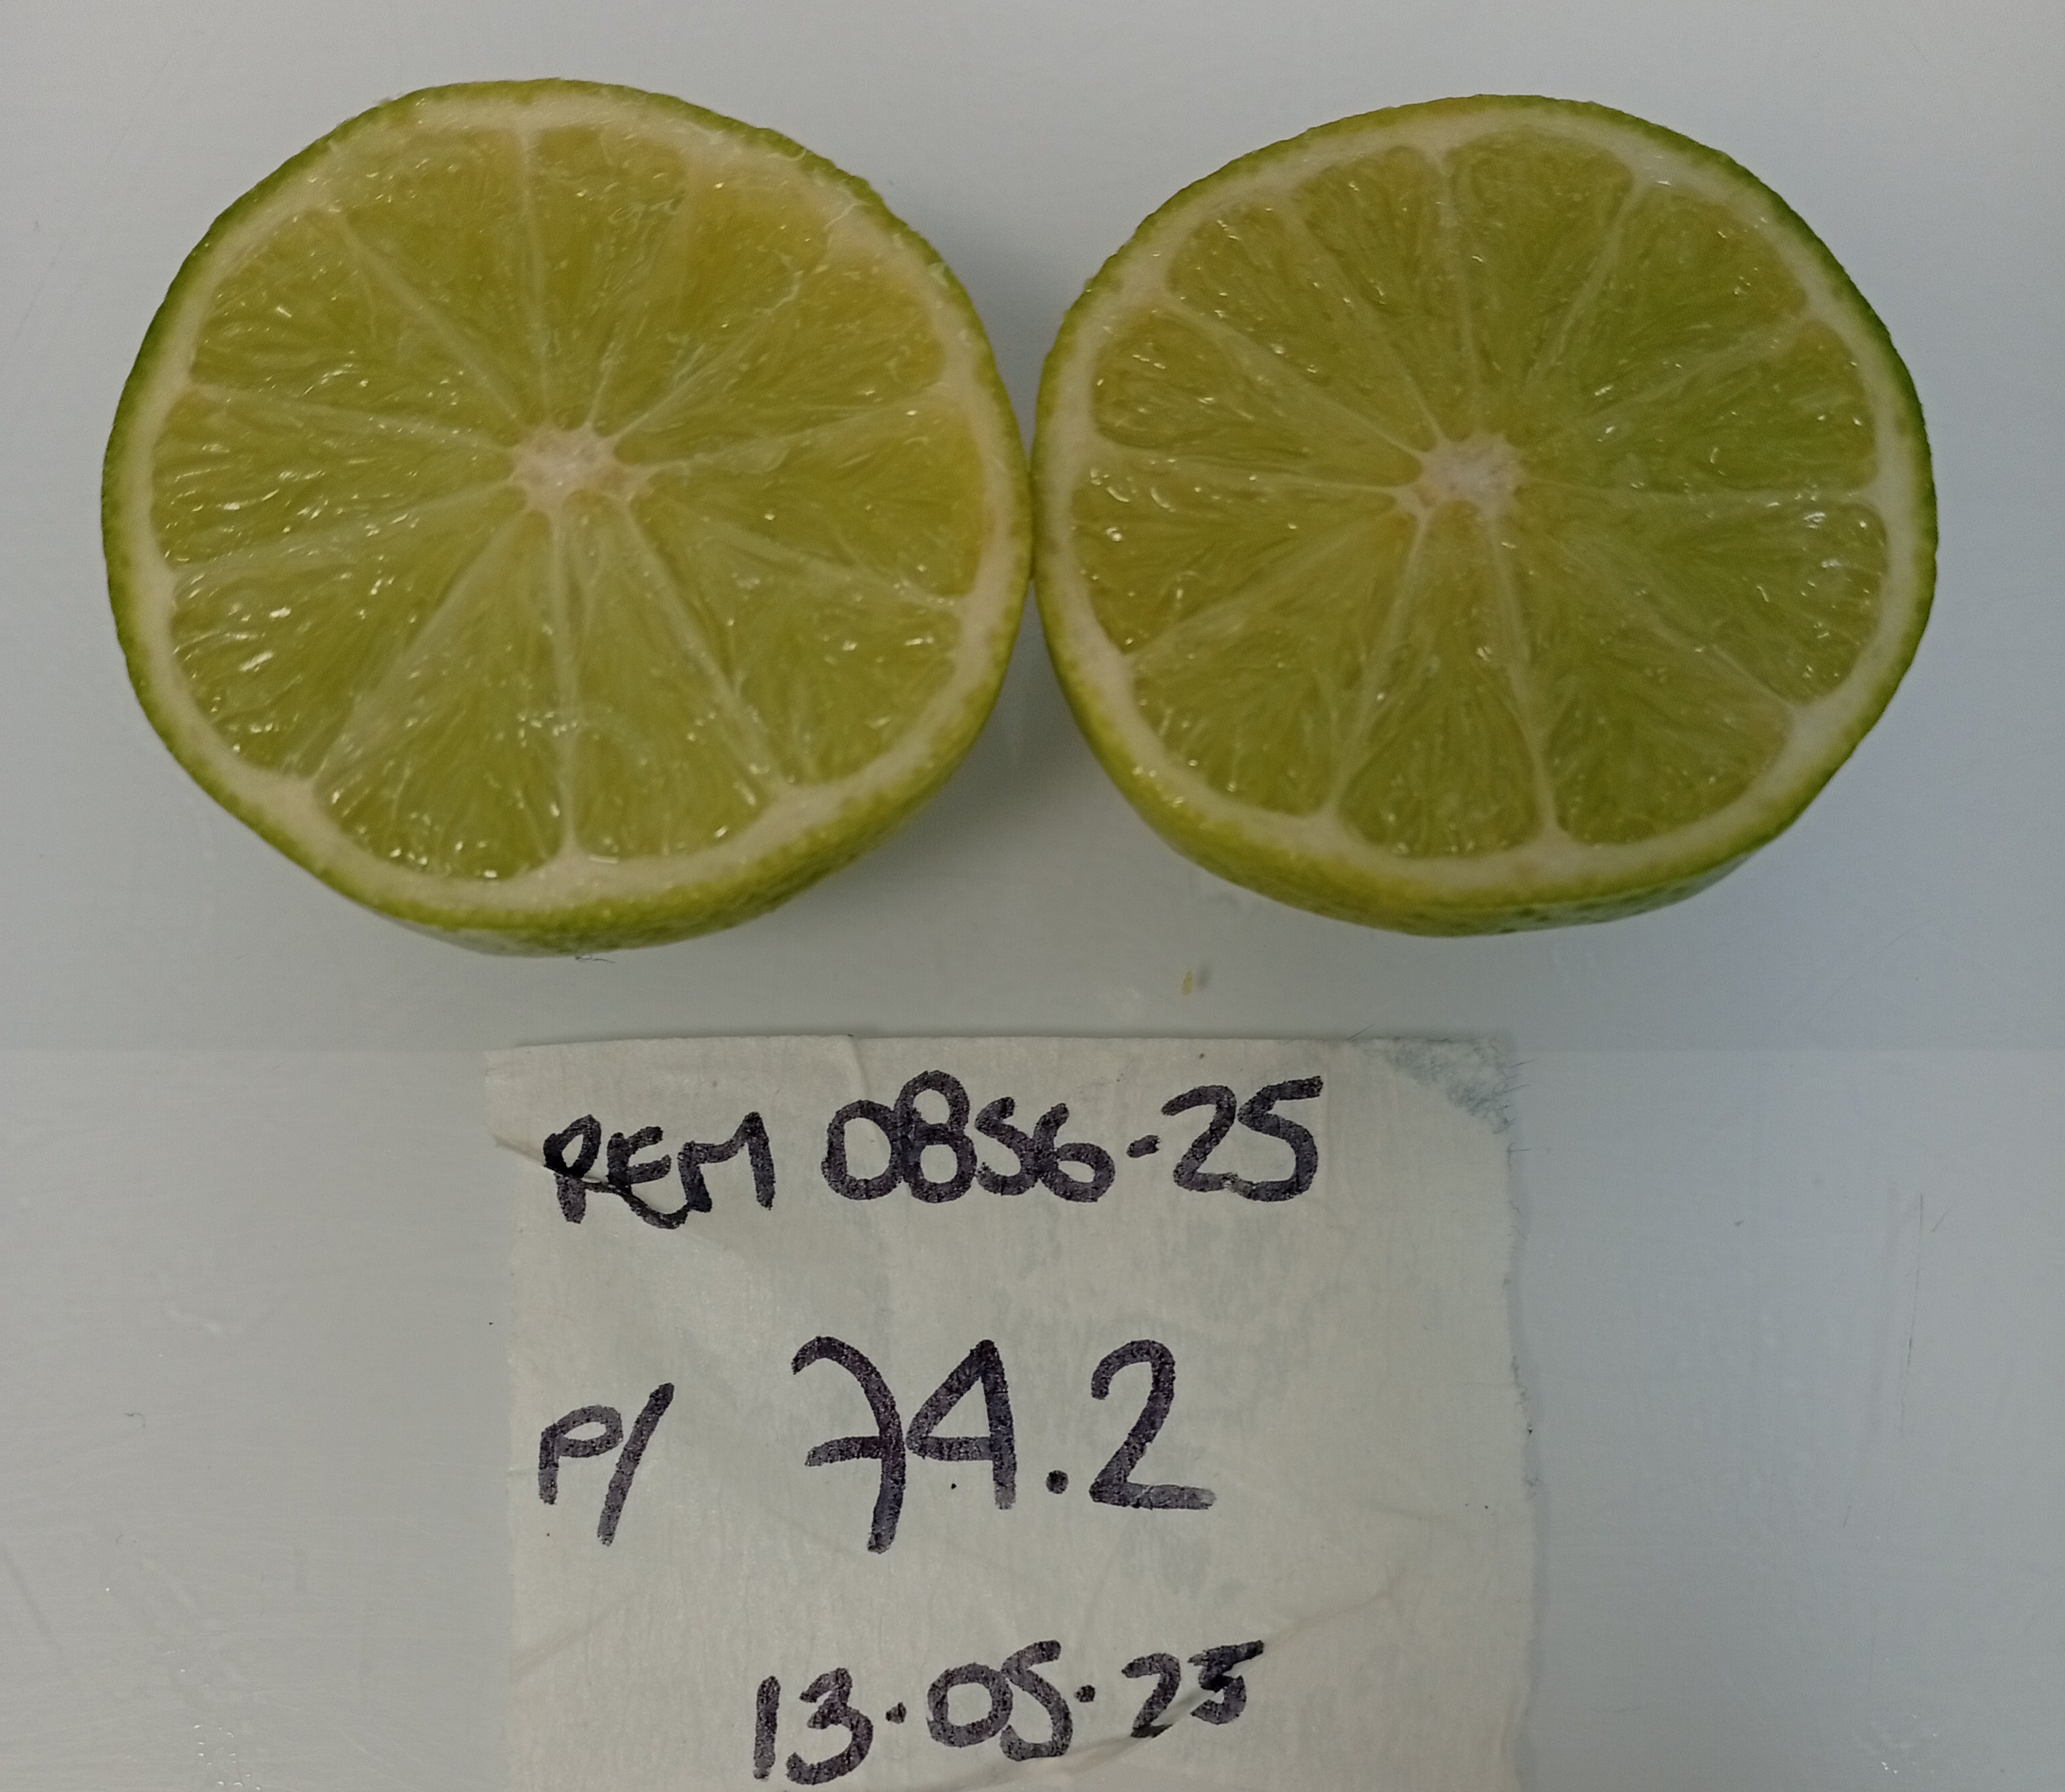 REM 0856-25
P/ 74.2
13.05.25